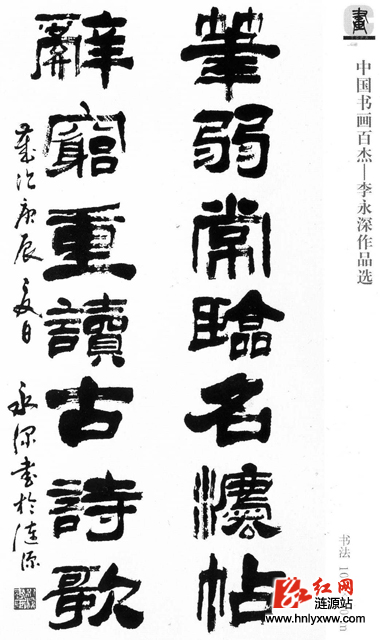 畫
中国书画百杰—李永深作品选
筆弱常臨名灋帖
辭窮重讀古詩歌
歲次庚辰夏日 永深書於漣源
书法
红网
涟源站
www.hnlyxw.com